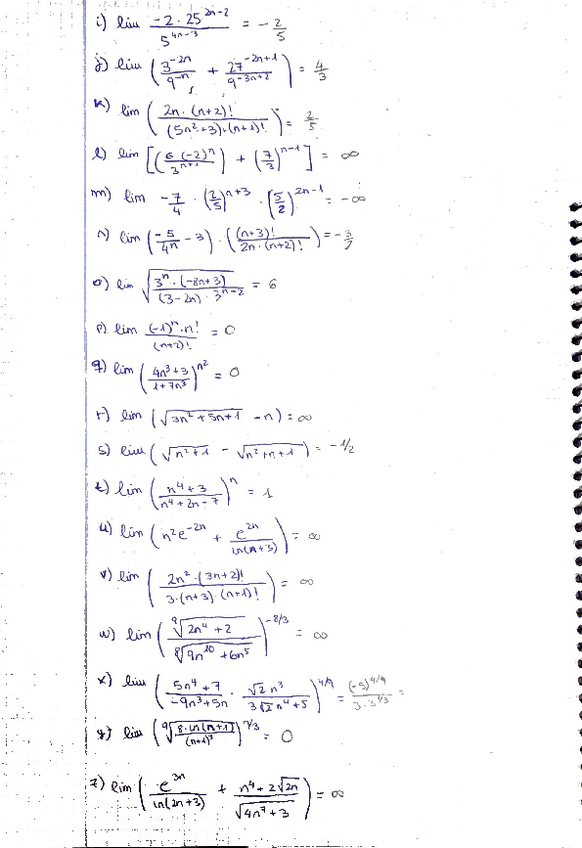 i) lim (-2 · 25^(2n-2)) / (5^(4n-3)) = -2/5
j) lim (3^(-2n)/9^(-n) + 27^(-2n+1)/9^(-3n+2)) = 4/3
k) lim (2n · (n+2)! / (5n²+3)·(n+1)!) = 2/5
l) lim [(6·(-2)^n / 3^(n+1)) + (7/3)^(n-1)] = ∞
m) lim -7/4 · (2/5)^(n+3) · (5/2)^(2n-1) = -∞
n) lim (-5/4^n - 3) · ((n+3)! / 2n·(n+2)!) = -3/7
o) lim √(3^n · (-8n+3) / (3-2n) · 3^(n-2)) = 6
p) lim (-1)^n · n! / (n+2)! = 0
q) lim ((4n³+3)/(1+7n³))^(n²) = 0
r) lim (√(3n²+5n+1) - n) = ∞
s) lim (√(n²+1) - √(n²+n+1)) = -1/2
t) lim ((n⁴+3)/(n⁴+2n-7))^n = 1
u) lim (n²e^(-2n) + e^(2n)/ln(n+3)) = ∞
v) lim (2n²·(3n+2)! / 3·(n+3)·(n+1)!) = ∞
w) lim (√(2n⁴+2) / √(9n^10+6n⁵))^(-8/3) = ∞
x) lim ((5n⁴+7)/(-9n³+5n) · √2 n³/(3√2 n⁴+5))^(4/9) = (-5)^(4/9) / 3·3^(4/3) =
y) lim (⁹√(8·ln(n+1)/(n+1)³))^(7/3) = 0
z) lim (e^(3n)/ln(2n+3) + (n⁴+2√(2n))/√(4n⁷+3)) = ∞